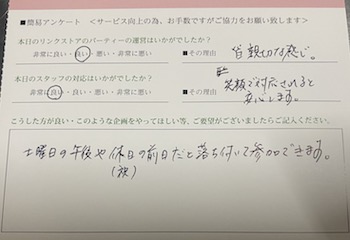 ■簡易アンケート <サービス向上の為、お手数ですがご協力をお願い致します>
本日のリンクストアのパーティーの運営はいかがでしたか?
非常に良い・良い・普通・悪い・非常に悪い ■その理由 皆親切な感じ。
本日のスタッフの対応はいかがでしたか?
非常に良い・良い・普通・悪い・非常に悪い ■その理由 笑顔で対応されると
安心します。
こうした方が良い・このような企画をやってほしい等、ご要望がございましたらご記入ください。
土曜日の午後や休日の前日だと落ち付いて参加できます。
(夜)